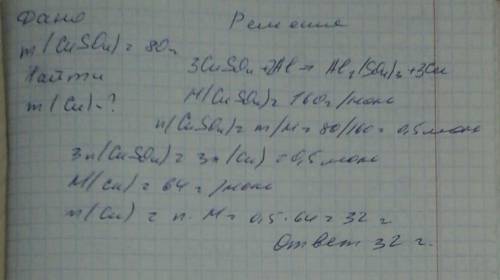 Дано
Решение
m(CuSO₄) = 80г
Найти
3CuSO₄+2Al = Al₂(SO₄)₃+3Cu
m(Cu)-?
M(CuSO₄) = 160г/моль
n(CuSO₄) = m/M = 80/160 = 0,5моль
3n(CuSO₄) = 3n(Cu) = 0,5моль
M(Cu) = 64 г/моль
m(Cu) = n·M = 0,5·64 = 32 г.
Ответ 32 г.